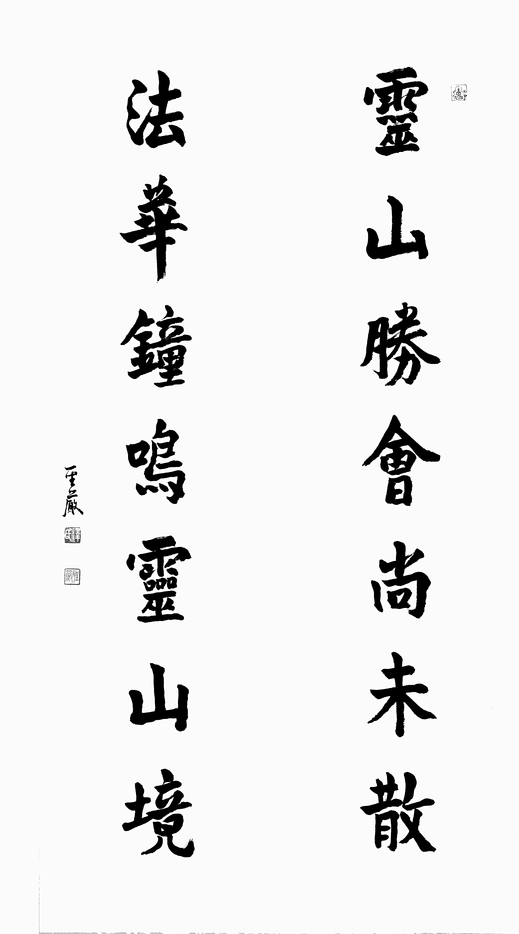 靈山勝會尚未散
法華鐘鳴靈山境
聖嚴